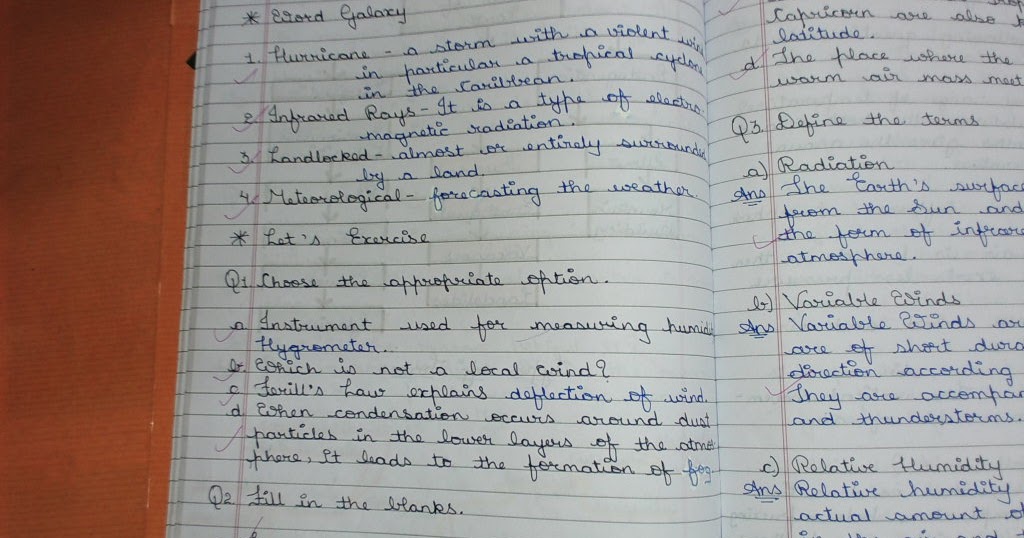 * Word Galaxy
1. Hurricane - a storm with a violent wind
in particular a tropical cyclone
in the Caribbean.
2. Infrared Rays - It is a type of electro
magnetic radiation.
3. Landlocked - almost or entirely surrounded
by a land.
4. Meteorological - forecasting the weather
* Let's Exercise
Q1. Choose the appropriate option.
a. Instrument used for measuring humidi
Hygrometer.
b. Which is not a local wind?
c. Ferill's Law explains deflection of wind.
d. When condensation occurs around dust
particles in the lower layers of the atmos
phere, It leads to the formation of fog
Q2. Fill in the blanks.
Capricorn are also
latitude.
d. The place where the
warm air mass meet
Q3. Define the terms
a) Radiation
Ans The Earth's surface
from the Sun and
the form of infrare
atmosphere.
b) Variable Winds
Ans Variable Winds are
are of short dura
direction according
They are accompan
and thunderstorms.
c) Relative Humidity
Ans Relative humidity
actual amount of